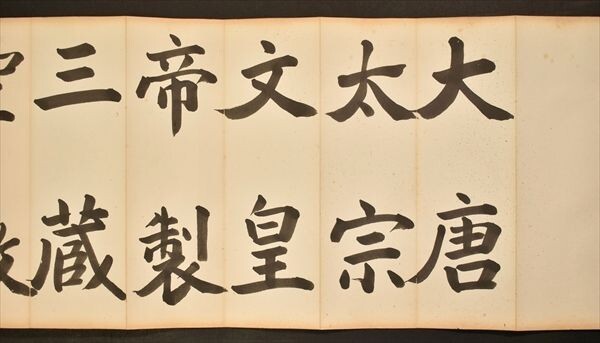 大唐
太宗
文皇
帝製
三蔵